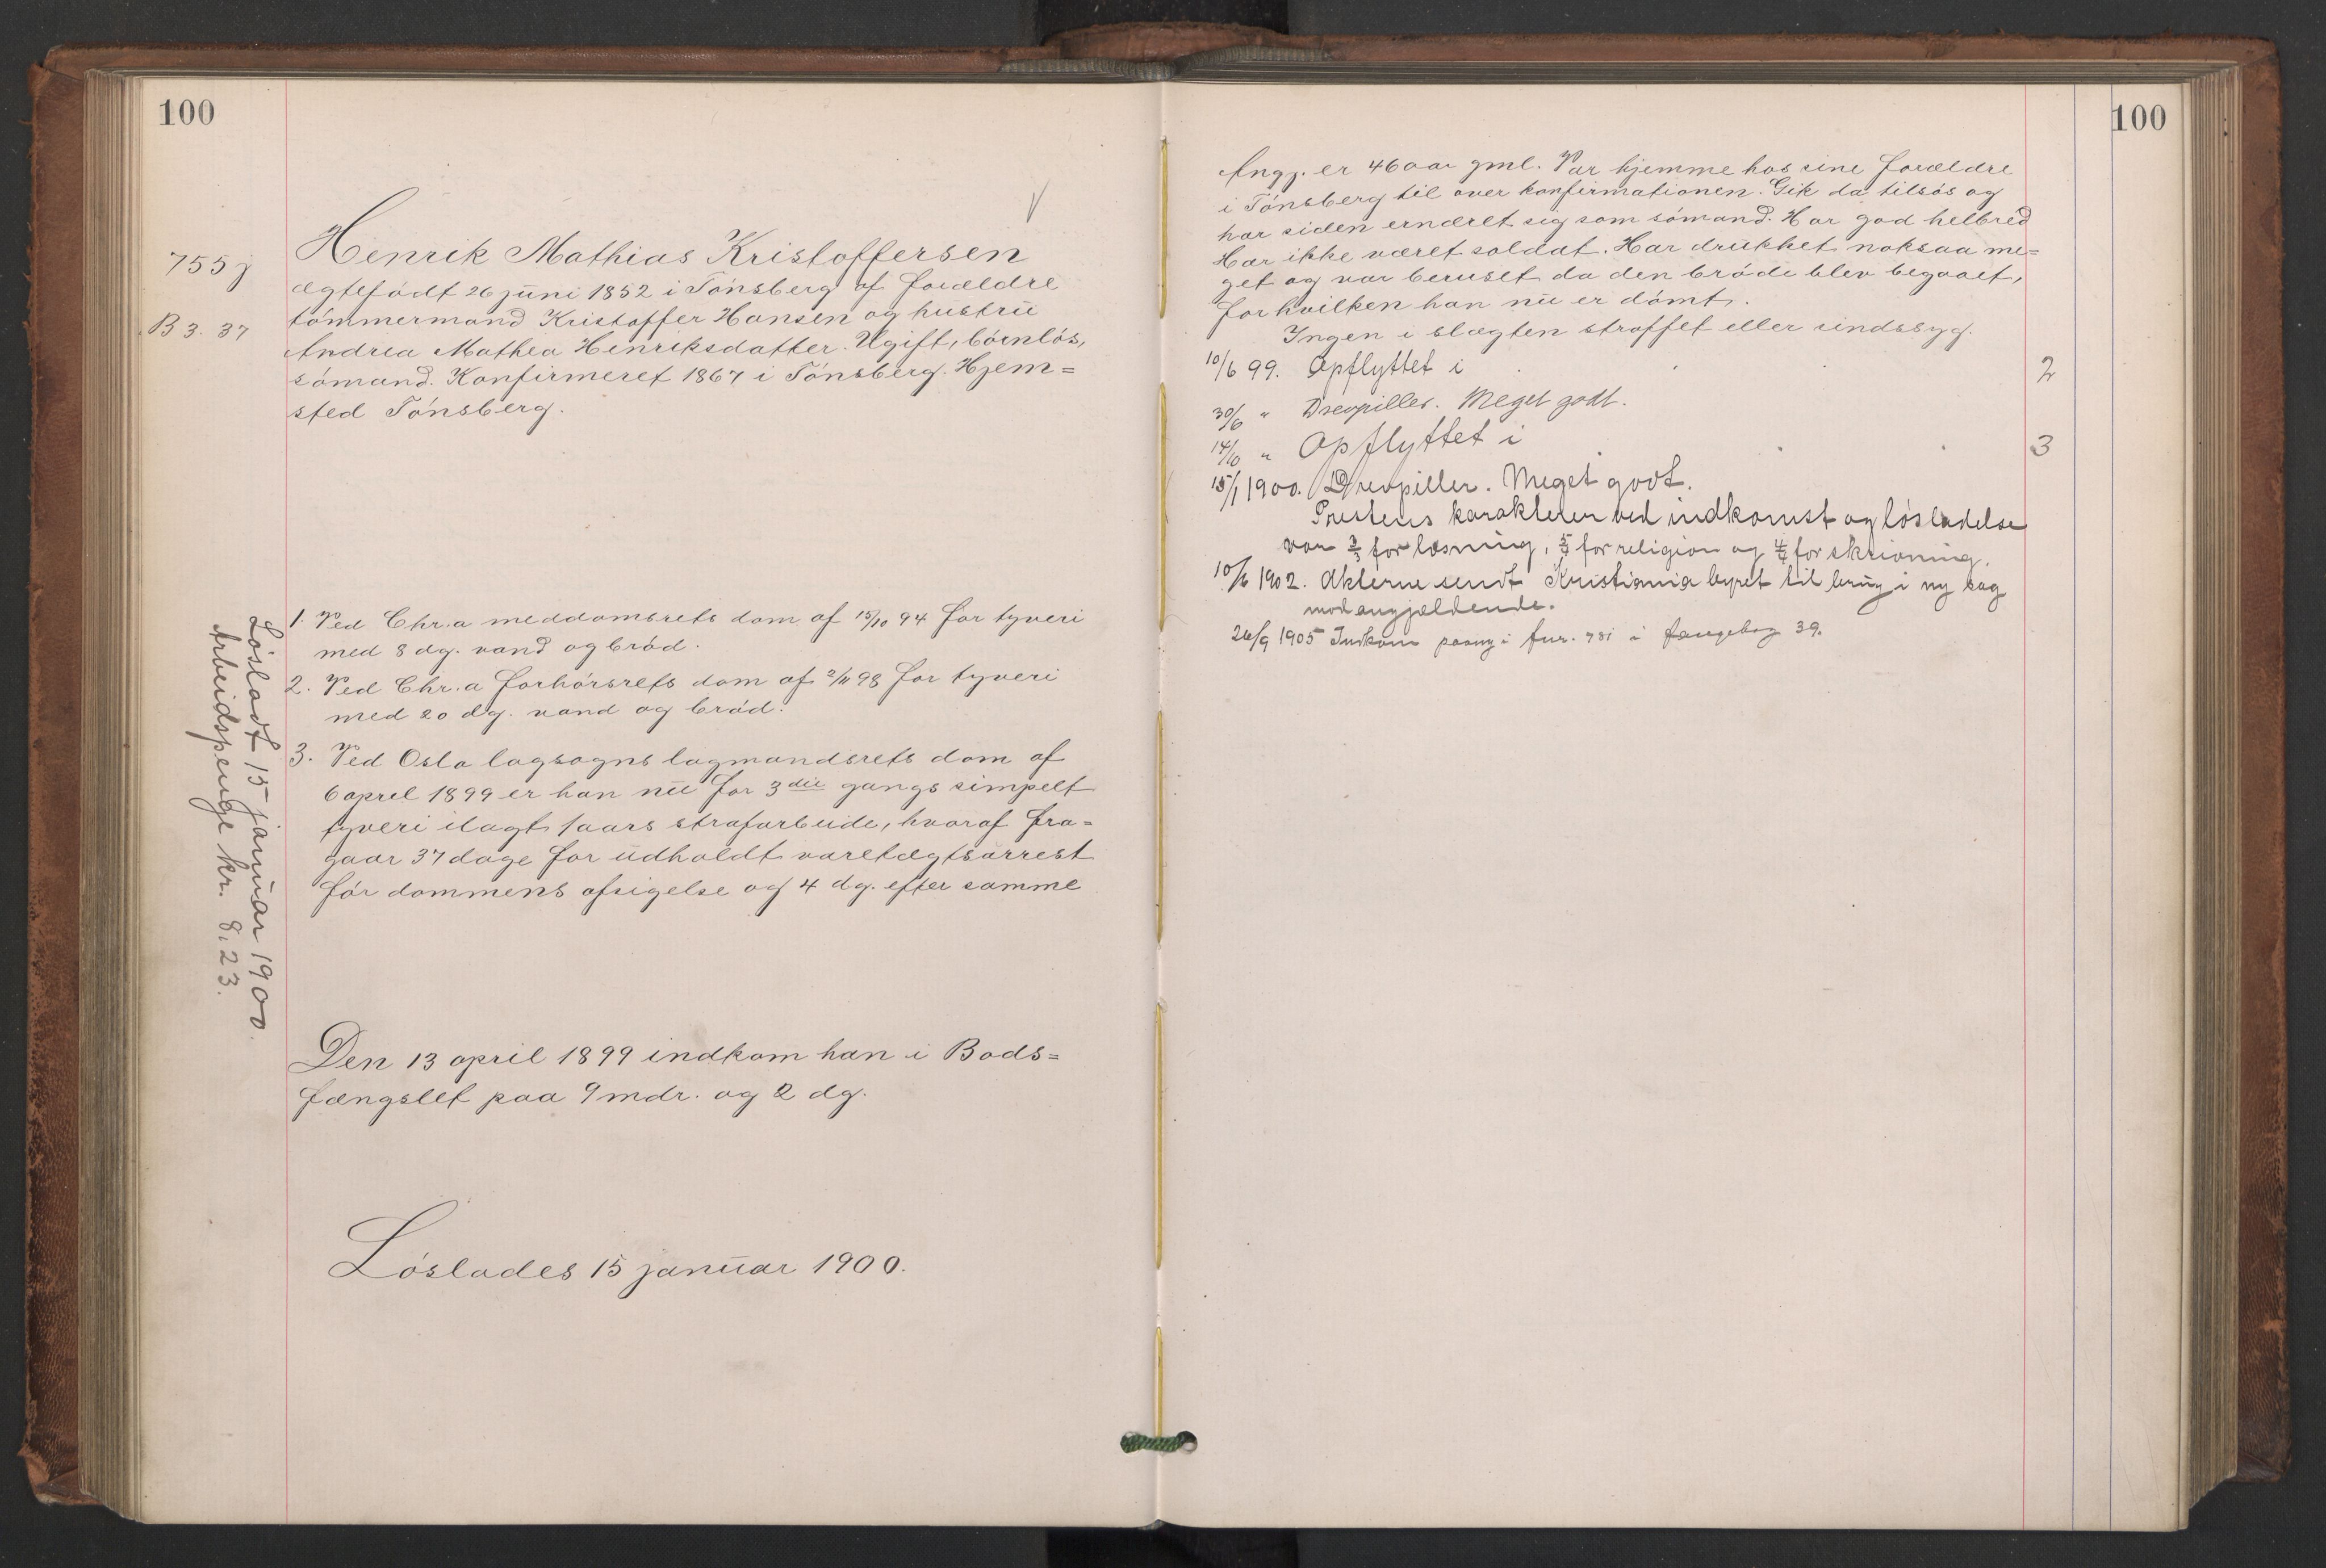 100
755 j
B 3. 37
Henrik Mathias Kristoffersen
ægtefödt 26 juni 1852 i Tönsberg af forældre
tömmermand Kristoffer Hansen og hustru
Andrea Mathea Henriksdatter. Ugift, börnlös,
sömand. Konfirmeret 1867 i Tönsberg. Hjem=
sted Tönsberg.
1. Ved Chr.a meddomsrets dom af 15/10 94 for tyveri
med 8 dg. vand og bröd.
2. Ved Chr.a forhörsrets dom af 2/11 98 for tyveri
med 20 dg. vand og bröd.
3. Ved Oslo lagsogns lagmandsrets dom af
6 april 1899 er han nu for 3die gangs simpelt
tyveri ilagt 1 aars strafarbeide, hvoraf fra=
gaar 37 dage for udholdt varetægtsarrest
för dommens afsigelse og 4 dg. efter samme
Lösladt 15 januar 1900.
Arbeidspenge kr. 8,23.
Den 13 april 1899 indkom han i Bods=
fængslet paa 9 mdr. og 2 dg.
Löslades 15 januar 1900.
100
Angj. er 46 aar gml. Var hjemme hos sine forældre
i Tönsberg til over konfirmationen. Gik da tilsös og
har siden ernæret sig som sömand. Har god helbred
Har ikke været soldat. Har drukket noksaa me=
get og var beruset da den bröde blev begaaet,
for hvilken han nu er dömt.
Ingen i slægten straffet eller sindssyg.
10/6 99. Opflyttet i 2
30/6 " Drevpiller. Meget godt.
14/10 " Opflyttet i 3
15/1 1900. Drevpiller. Meget godt.
Prestens karakterer ved indkomst og lösladelse
var 3/3 for læsning, 5/5 for religion og 4/4 for skrivning.
10/6 1902. Akterne sendt Kristiania byret til brug i ny sag
mod angjældende.
26/9 1905 Indkom paany i fnr. 781 i fangebog 39.